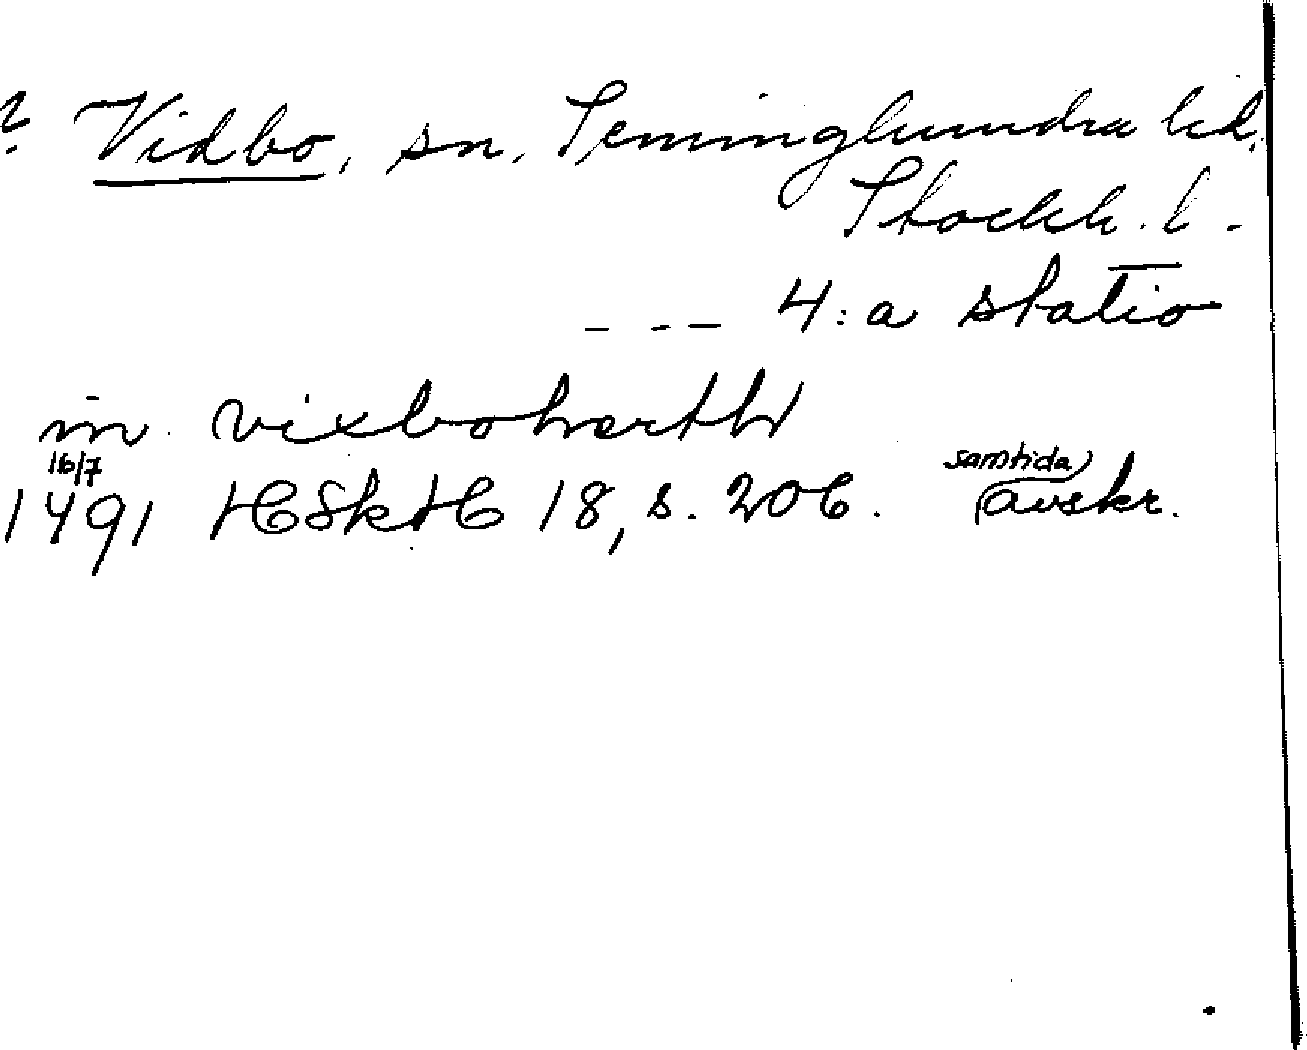 ? Vidbo, sn. Seminghundra hd,
Stockh. l.
- - - 4:a statio
in vixbohærth
16/7
1491 HSkH 18, s. 206. samtida avskr.